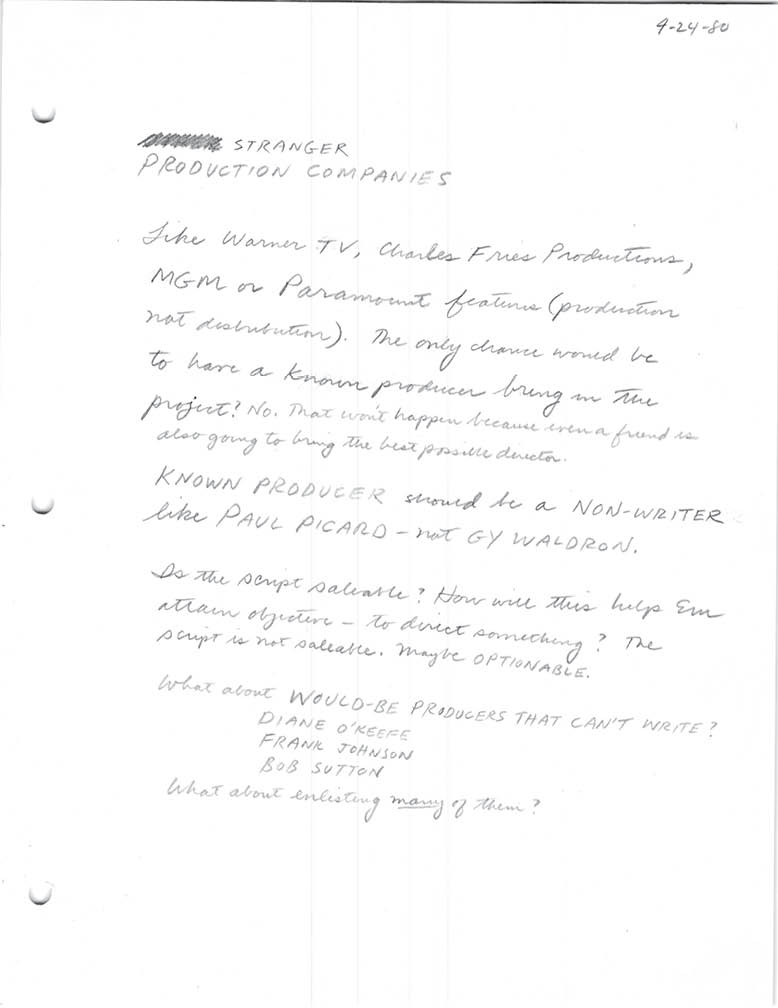 4-24-80
STRANGER
PRODUCTION COMPANIES
Like Warner TV, Charles Fries Productions,
MGM or Paramount features (production
not distribution). The only chance would be
to have a known producer bring in the
project? No. That won't happen because even a friend is
also going to bring the best possible director.
KNOWN PRODUCER should be a NON-WRITER
like PAUL PICARD - not GY WALDRON.
Is the script saleable? How will this help Em
attain objective - to direct something? The
script is not saleable. Maybe OPTIONABLE.
What about WOULD-BE PRODUCERS THAT CAN'T WRITE?
DIANE O'KEEFE
FRANK JOHNSON
BOB SUTTON
What about enlisting many of them?